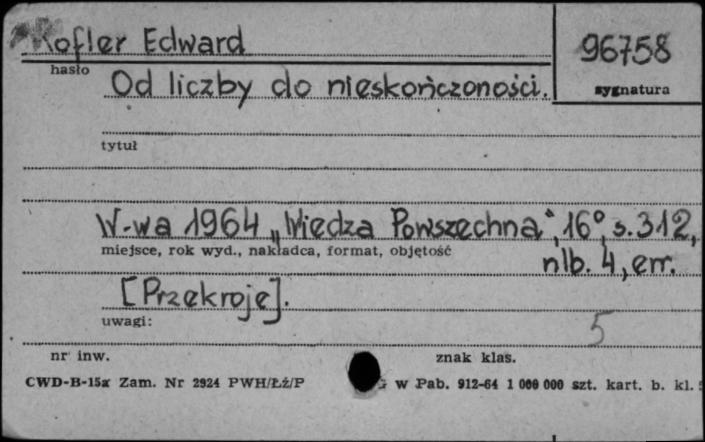 Kofler Edward
96758
hasło
sygnatura
Od liczby do nieskończoności.
tytuł
W-wa 1964 „Wiedza Powszechna", 16°, s. 312,
miejsce, rok wyd., nakładca, format, objętość
nlb. 4, err.
[Przekroje].
uwagi:
5
nr inw.
znak klas.
CWD-B-15a Zam. Nr 2924 PWH/Łż/P
w Pab. 912-64 1 000 000 szt. kart. b. kl.